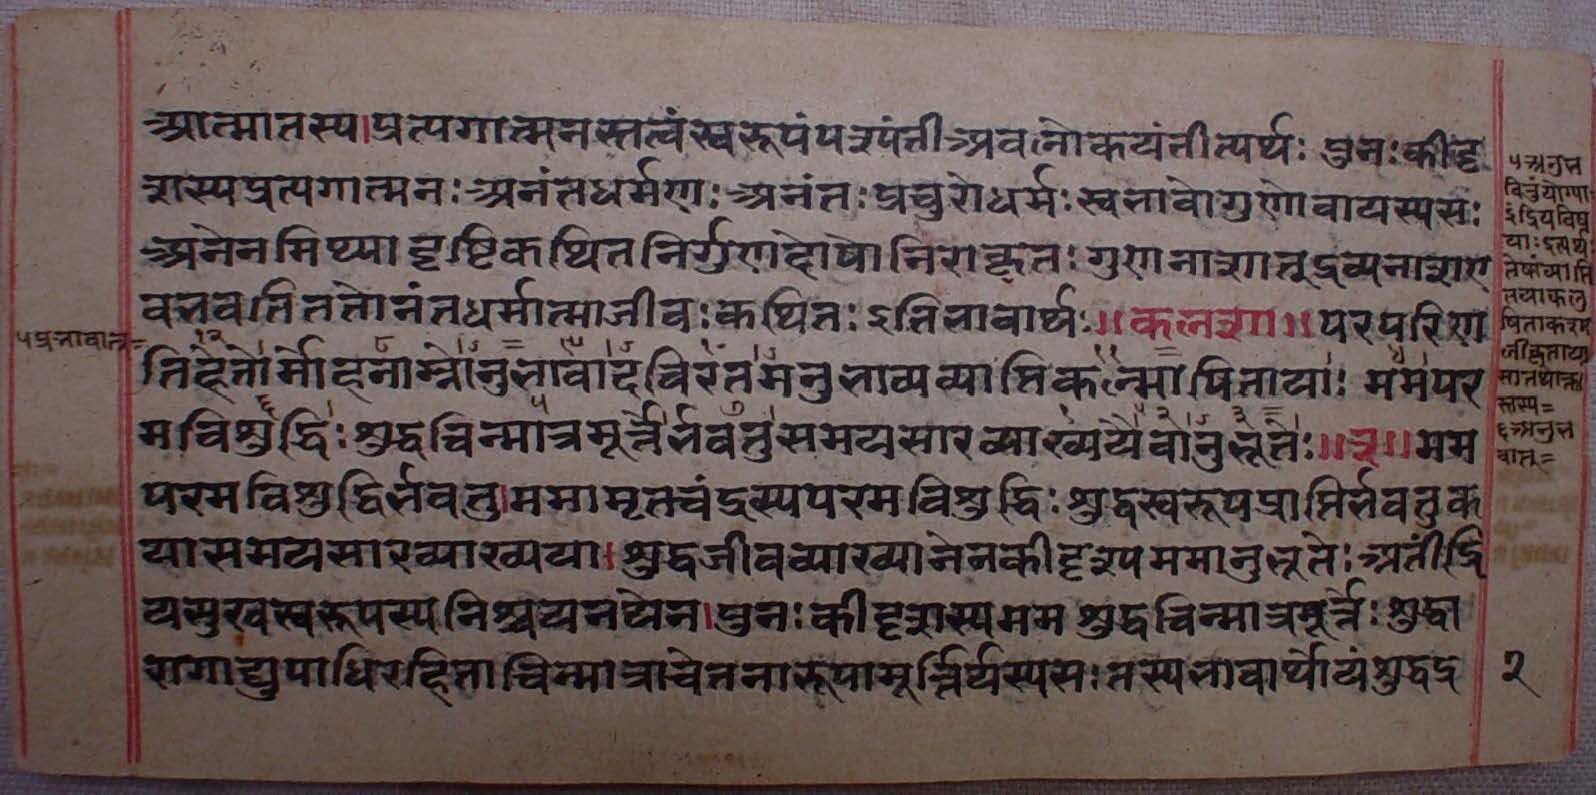 आत्मा तस्य। प्रत्यगात्मनस्तत्वं स्वरूपं पश्यंती अवलोकयंतीत्यर्थः पुनः कीदृ
शस्य प्रत्यगात्मनः अनंतधर्मणः अनंतः प्रचुरो धर्मः स्वभावो गुणो वा यस्य सः
अनेन मिथ्यादृष्टिकथित निर्गुणदोषो निराकृतः गुणनाशात् द्रव्यनाश ए
व भवति ततोनंतधर्मात्मा जीवः कथितः इति भावार्थः॥ कलश॥ परपरिण
तिहेतोर्मोहनाम्नोनुभावादविरतमनुभाव्यव्याप्तिकल्माषितायाः मम पर
मविशुद्धिः शुद्धचिन्मात्रमूर्त्तेर्भवतु समयसारव्याख्ययैवानुभूतेः॥३॥ मम
परमविशुद्धिर्भवतु। ममामृतचंद्रस्य परमविशुद्धिः शुद्धस्वरूपप्राप्तिर्भवतु क
या समयसारव्याख्यया। शुद्धजीवव्याख्यानेन कीदृश्य ममानुभूतेः अतींद्रि
यसुखस्वरूपस्य निश्चयनयेन। पुनः कीदृशस्य मम शुद्धचिन्मात्रमूर्त्तेः शुद्धा
रागाद्युपाधिरहिता चिन्मात्रा चेतनारूपा मूर्त्तिर्यस्य सः तस्य भावार्थोयं शुद्धद्र
२